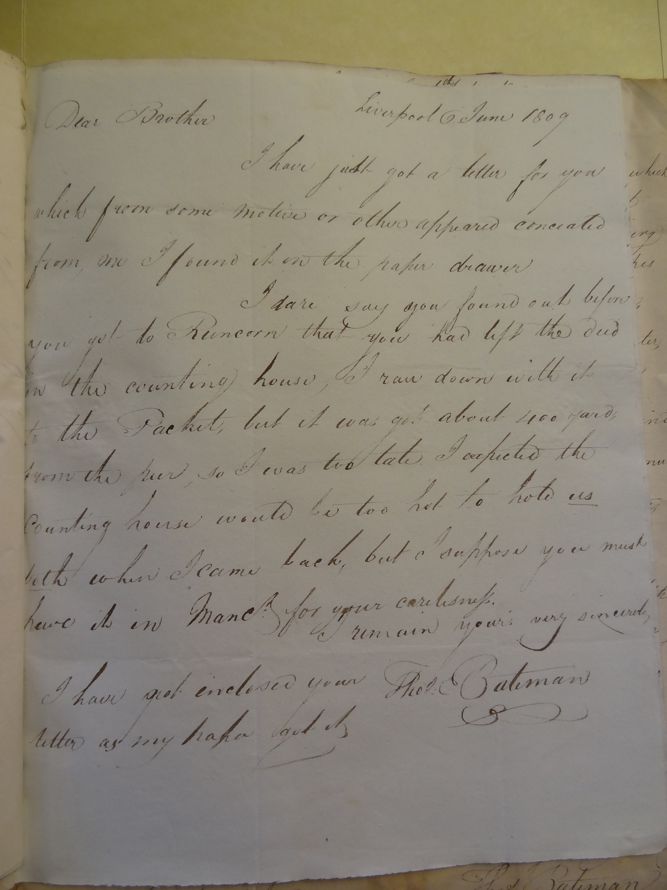 Liverpool 6 June 1809
Dear Brother
I have just got a letter for you
which from some motive or other appeared concealed
from me I found it in the paper drawer
I dare say you found out before
you got to Runcorn that you had left the deed
in the counting house, I ran down with it
to the Packet, but it was got about 400 yards
from the pier, so I was too late I expected the
Counting house would be too hot to hold us
both when I came back, but I suppose you must
have it in Manc.r for your carelesness.
I remain yours very sincerely
Tho.s Bateman
I have not enclosed your
letter as my papa got it
Bateman